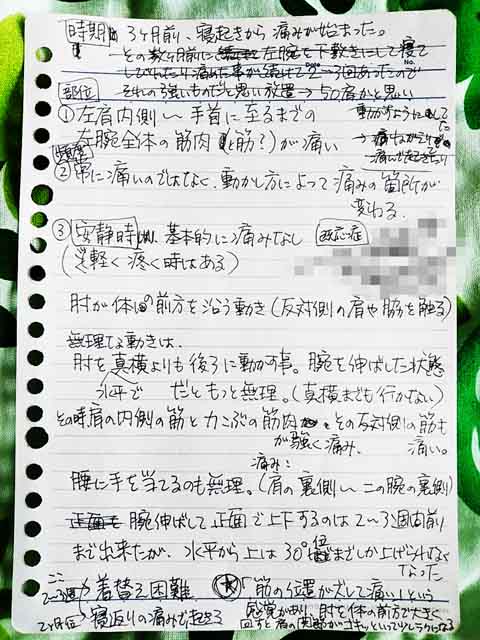 時期 3ヶ月前、寝起きから痛みが始まった。
その数ヶ月前に左腕を下敷きにして寝て
しびれたり痛めた事が続けて2~3回あったので
それの強いものだと思い放置→50肩かと思い
部位 動かすようにしてた
①左肩内側~手首に至るまでの
左腕全体の筋肉(と筋?)が痛い
頻度
②常に痛いのではなく、動かし方によって痛みの箇所が
変わる。
③安静時は、基本的に痛みなし
(軽く疼く時はある)
肘が体の前方を沿う動き(反対側の肩や脇を触る)
無理てな動きは、
肘を真横よりも後ろに動かす事。腕を伸ばした状態
水平で だともっと無理。(真横までも行かない)
その時肩の内側の筋と力こぶの筋肉 その反対側の筋も
が強く痛み、 痛い。
痛み:
腰に手を当てるのも無理。(肩の裏側~二の腕の裏側)
正面も 腕伸ばして正面で上下するのは2~3週間前
まで出来たが、水平から上は30°位までしか上げられなく
なった
ここ
2~3週 着替え困難 「筋の位置がズレて痛い」という
2ヶ月位 寝返りの痛みで起きる 感覚があり、肘を体の前方で大きく
回すと肩の関節がゴキッといって少しラクになる